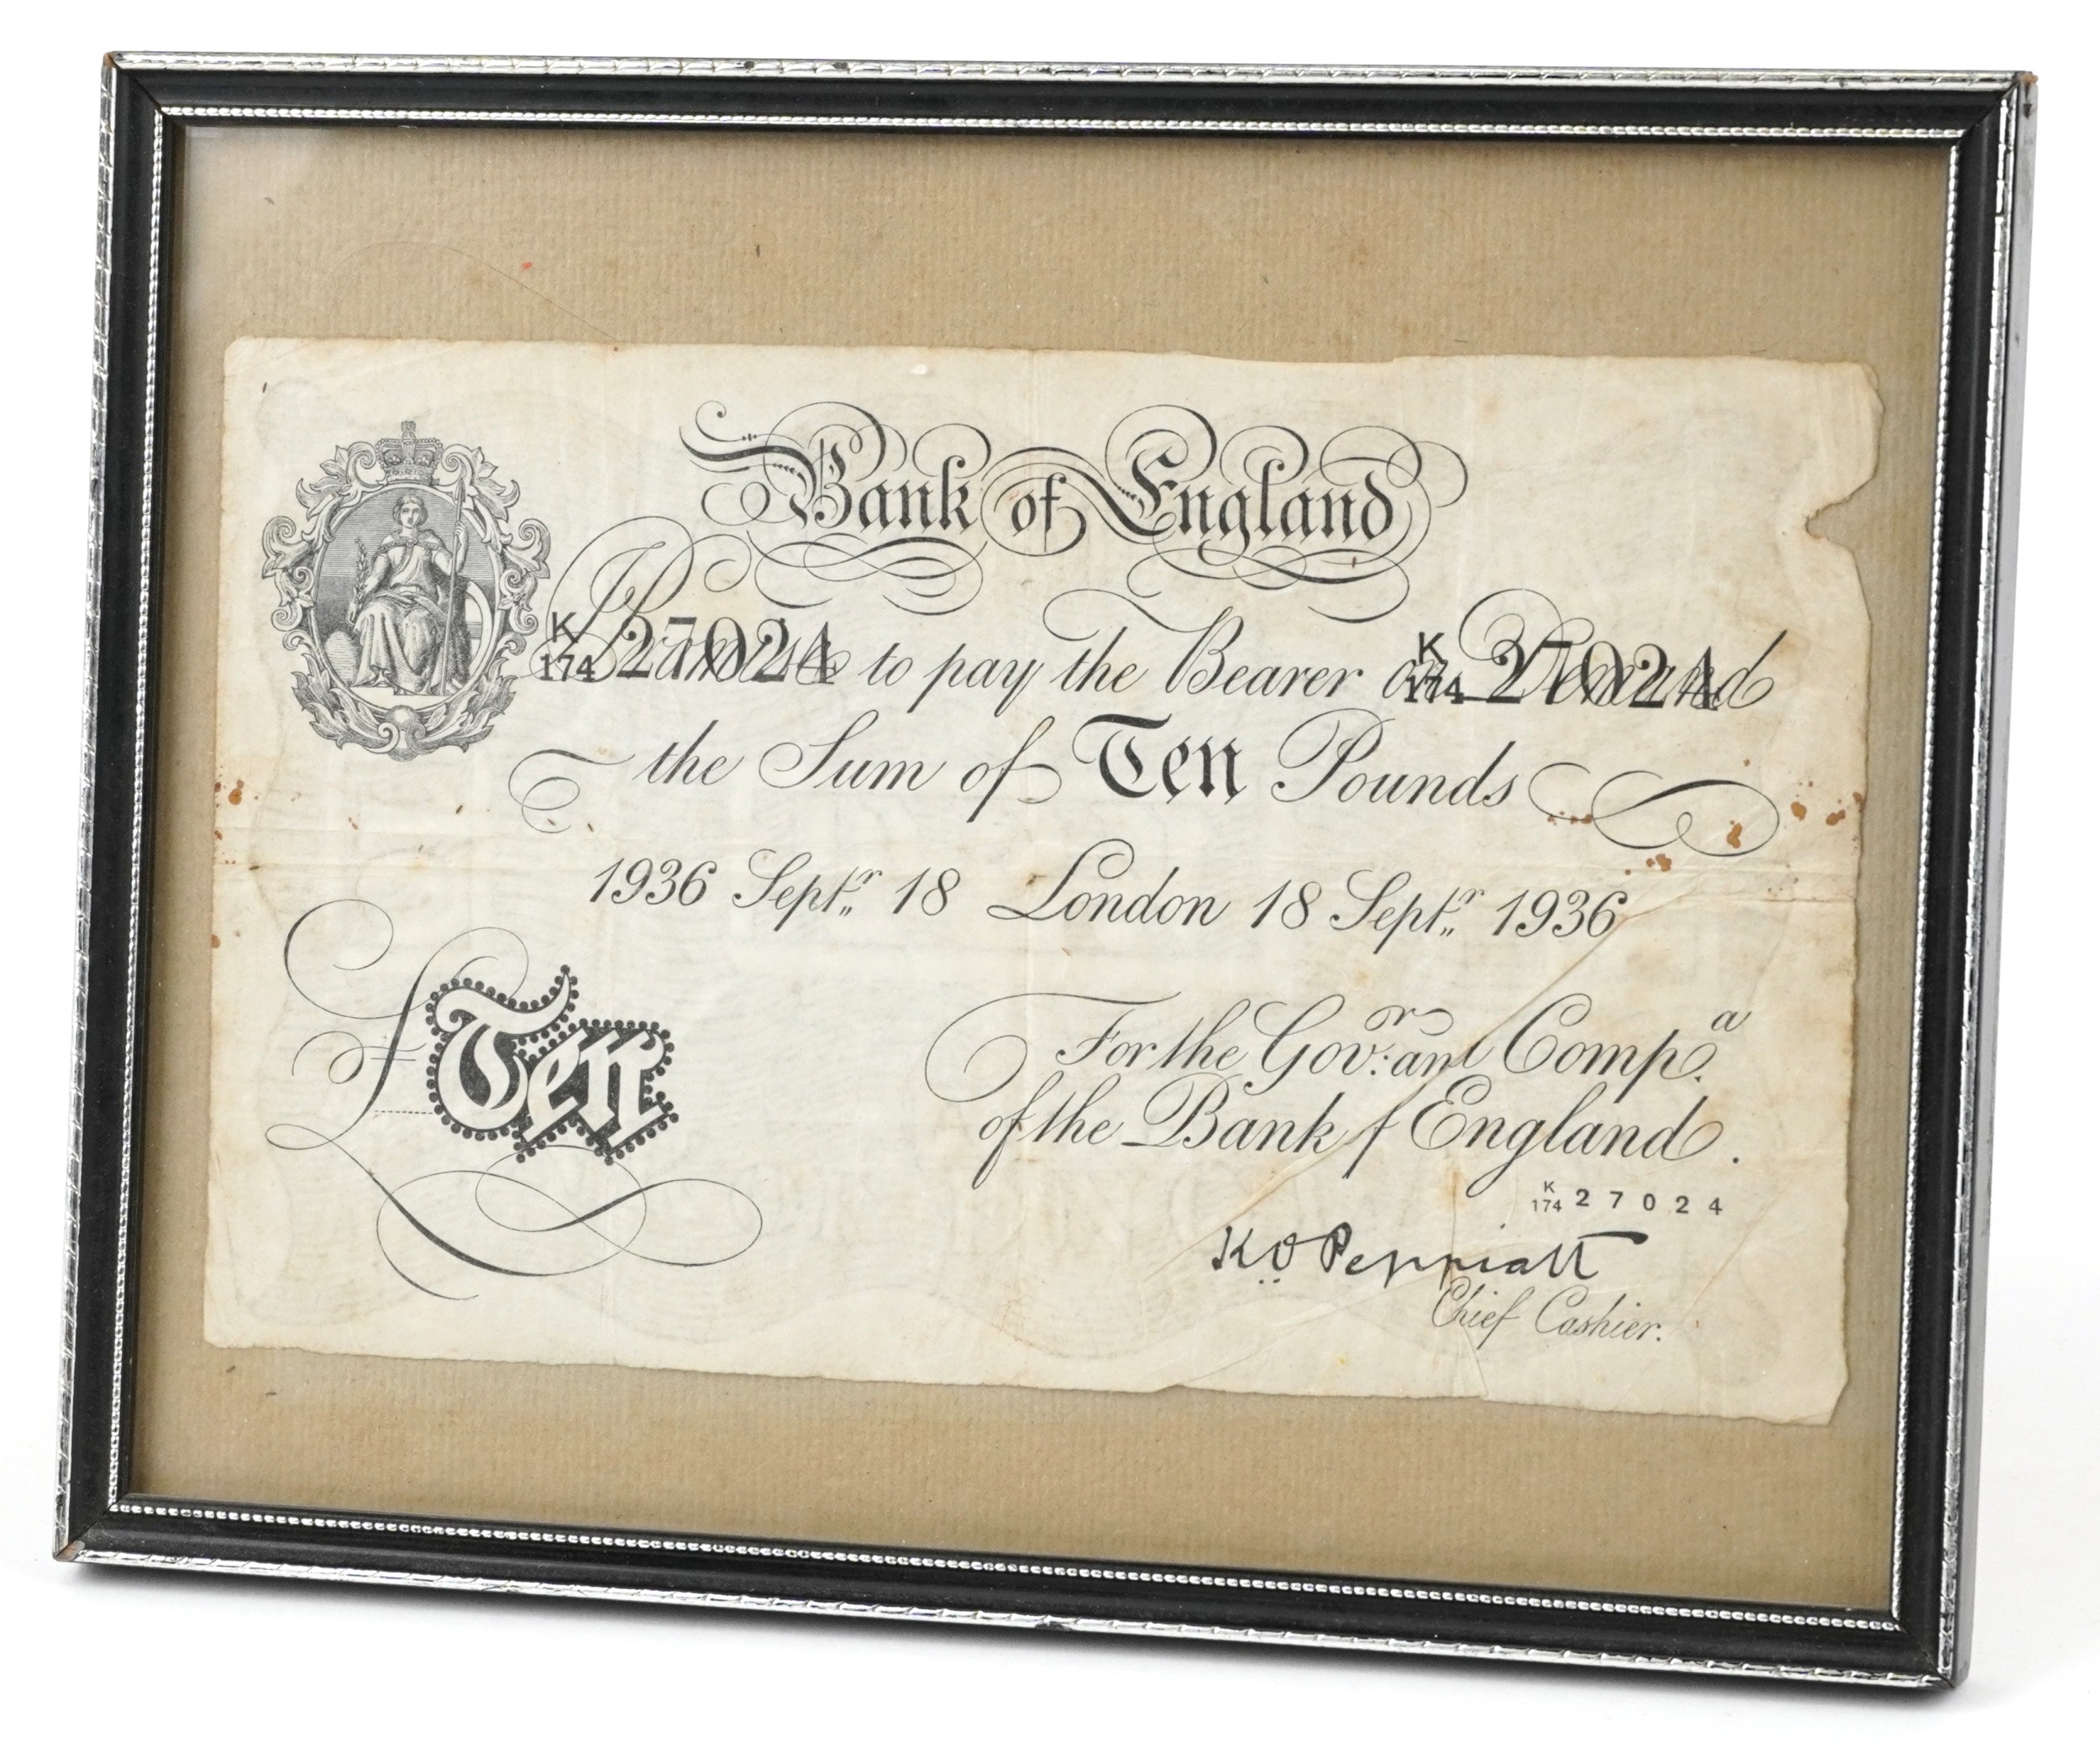 Bank of England
K
174 27024 Promise to pay the Bearer on Demand K
174 27024
the Sum of Ten Pounds
1936 Septr 18 London 18 Septr 1936
£Ten
For the Govr: and Compa.
of the Bank of England.
K
174 27024
K.O. Peppiatt
Chief Cashier.